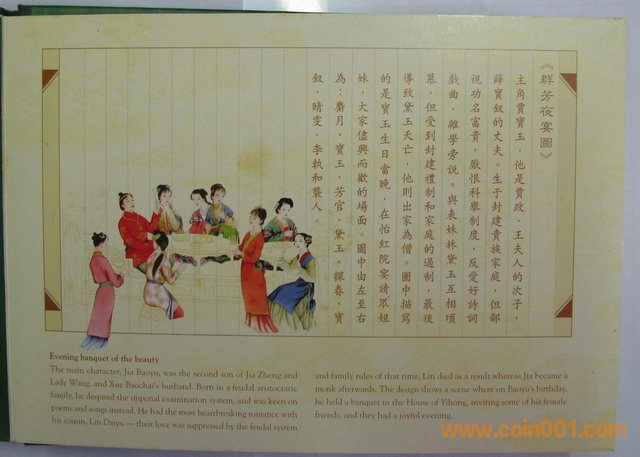 《群芳夜宴圖》
主角賈寶玉，他是賈政、王夫人的次子，
薛寶釵的丈夫。生于封建貴族家庭，但鄙
視功名富貴，厭恨科舉制度，反愛好詩詞
戲曲，雜學旁說。與表妹林黛玉互相頃
慕，但受到封建禮制和家庭的遏制，最後
導致黛玉夭亡，他則出家為僧。圖中描寫
的是寶玉生日當晚，在怡紅院宴請眾姐
妹，大家儘興而歡的場面。圖中由左至右
為：麝月、寶玉、芳官、黛玉、探春、寶
釵、晴雯、李執和襲人。
Evening banquet of the beauty
The main character, Jia Baoyu, was the second son of Jia Zheng and
Lady Wang, and Xue Baochai's husband. Born in a feudal aristocratic
family, he despised the imperial examination system, and was keen on
poems and songs instead. He had the most heartbreaking romance with
his cousin, Lin Daiyu — their love was suppressed by the feudal system
and family rules of that time, Lin died as a result whereas Jia became a
monk afterwards. The design shows a scene where on Baoyu's birthday,
he held a banquet in the House of Yihong, inviting some of his female
friends, and they had a joyful evening.
www.coin001.com